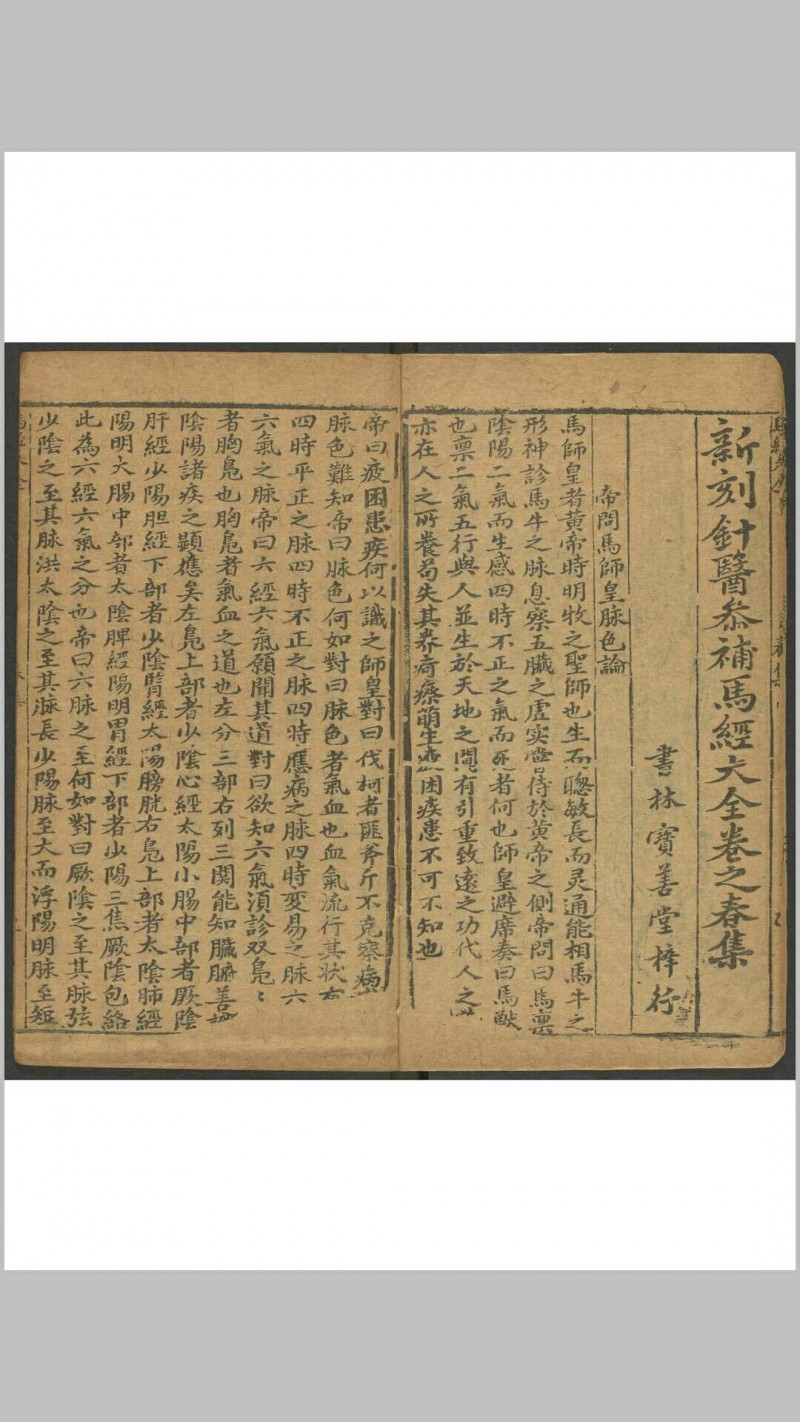 新刻針醫叅補馬經大全卷之春集
書林寳善堂梓行
帝問馬師皇脉色論
馬師皇者黄帝時明牧之聖師也生而聰敏長而灵通能相馬牛之
形神診馬牛之脉息察五臓之虚实甞侍於黄帝之側帝問曰馬禀
陰陽二氣而生感四時不正之氣而死者何也師皇避席奏曰馬獸
也禀二氣五行與人並生於天地之間有引重致遠之功代人之
亦在人之所養苟失其养疴瘵萌生疲困疾患不可不知也
帝曰疲困患疾何以識之師皇對曰伐柯者匪斧斤不克察病
脉色難知帝曰脉色何如對曰脉色者氣血也血氣流行其状有
四時平正之脉四時不正之脉四時應病之脉四時変易之脉六
六氣之脉帝曰六經六氣願聞其道對曰欲知六氣湏診双凫〻
者胸凫也胸凫者氣血之道也左分三部右列三関能知臓腑善
陰陽諸疾之顕應矣左凫上部者少陰心經太陽小腸中部者厥陰
肝經少陽胆經下部者少陰腎經太陽膀胱右凫上部者太陰肺經
陽明大腸中部者太陰脾經陽明胃經下部者少陽三焦厥陰包絡
此為六經六氣之分也帝曰六脉之至何如對曰厥陰之至其脉弦
少陰之至其脉洪太陰之至其脉長少陽脉至大而浮陽明脉至短